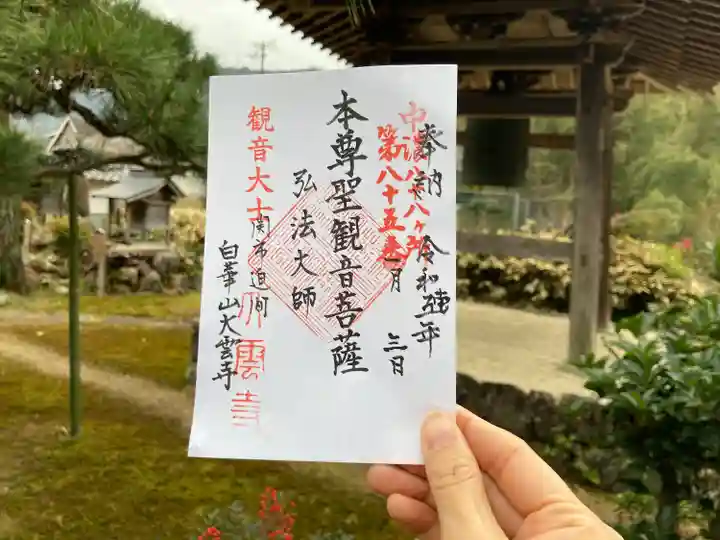 奉納 令和 年
中濃八十八ヶ所
第八十五番
月 三日
本尊聖観音菩薩
弘法大師
観音大士
関市迫間
大雲寺
白華山大雲寺